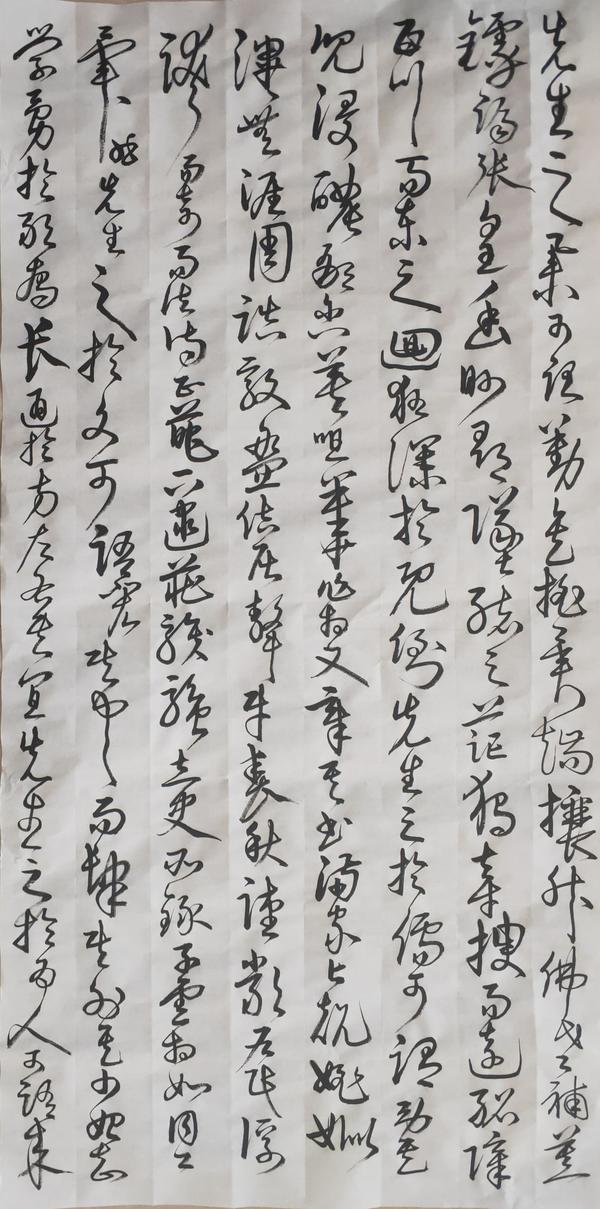 先生之業可謂勤矣抵排異端攘斥佛老補苴
罅漏張皇幽眇尋墜緒之茫獨旁搜而遠紹障
百川而東之迴狂瀾於既倒先生之於儒可謂勞矣
沉浸醲郁含英咀華作為文章其書滿家上規姚姒
渾無涯周誥殷盤佶屈聱牙春秋謹嚴左氏浮
誇易奇而法詩正而葩下逮莊騷太史所錄子雲相如同工
異曲先生之於文可謂閎其中而肆其外矣少始知
學勇於敢為長通於方左右其宜先生之於為人可謂成